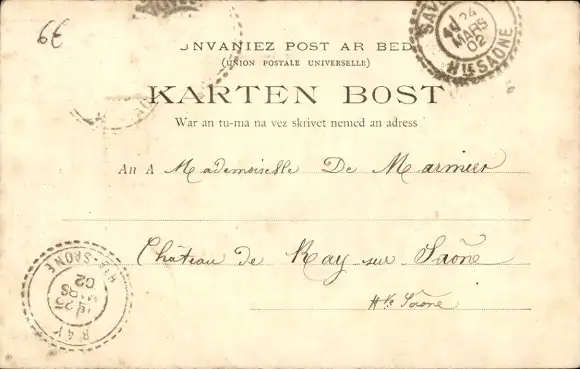 39
SAV
24
MARS
02
Hte SAONE
UNVANIEZ POST AR BED
(UNION POSTALE UNIVERSELLE)
KARTEN BOST
War an tu-ma na vez skrivet nemed an adress
An A Mademoiselle De Marmier
Château de Ray sur Saône
Hte Saône
RAY
25
MARS
02
Hte SAONE